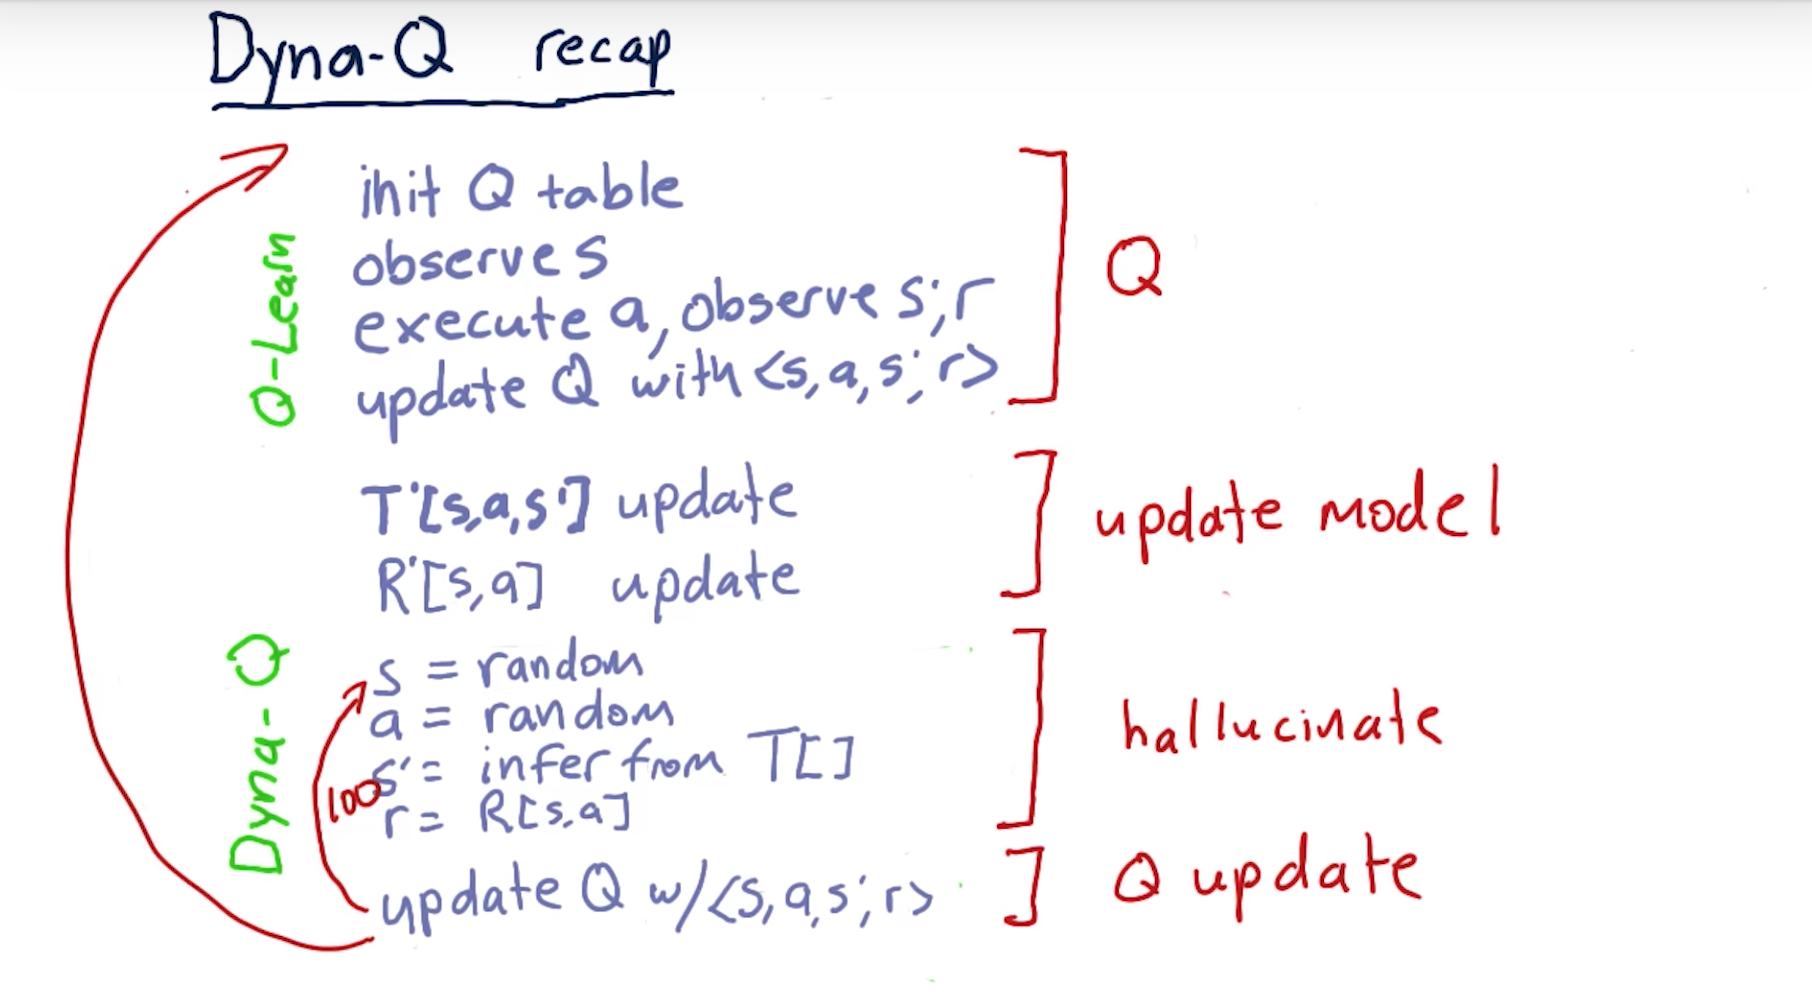 Dyna-Q recap
Q-Learn
init Q table
observe s
execute a, observe s', r
update Q with <s, a, s', r>
Q
T'[s,a,s'] update
R'[s,a] update
update model
Dyna-Q
s = random
a = random
s' = infer from T[]
r = R[s,a]
100
hallucinate
update Q w/<s,a,s',r>
Q update